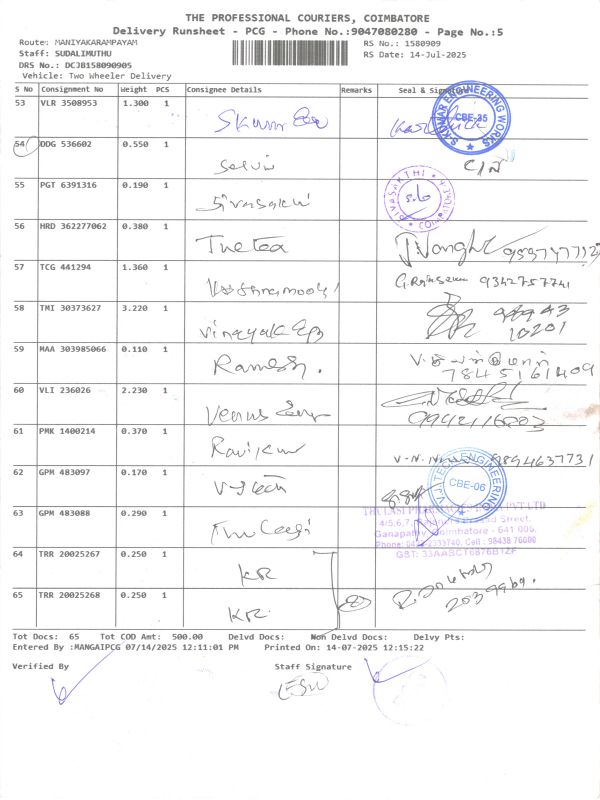 THE PROFESSIONAL COURIERS, COIMBATORE
Delivery Runsheet - PCG - Phone No.:9047080280 - Page No.:5
Route: MANIYAKARAMPAYAM
RS No.: 1580909
Staff: SUDALIMUTHU
RS Date: 14-Jul-2025
DRS No.: DCJB158090905
Vehicle: Two Wheeler Delivery
S No Consignment Weight PCS Consignee Details Remarks Seal & Signature
53 VLR 3508953 1.300 1 S Kumar Eng
S.KUMAR ENGINEERING WORKS CBE-35
54 DDG 536602 0.550 1 Selvi
55 PGT 6391316 0.190 1 Sivasakthi
56 HRD 362277062 0.380 1
57 TCG 441294 1.360 1 9342757741
58 TMI 30373627 3.220 1 Vinayak Eng
10201
59 MAA 303985066 0.110 1 Ramesh.
7845161409
60 VLI 236026 2.230 1 Venus Eng
61 PMK 1400214 0.370 1 Ravikumar 9894637731
62 GPM 483097 0.170 1 V J tech
V.J. TECH ENGINEERING CBE-06
63 GPM 483088 0.290 1
4/5,6,7, Street,
Ganapathy, Coimbatore - 641 006.
Phone: 0422-2333740, Cell : 98438 76000
GST: 33AASCT6876B1ZF
64 TRR 20025267 0.250 1 KR
65 TRR 20025268 0.250 1 KR.
Tot Docs: 65 Tot COD Amt: 500.00 Delvd Docs: Non Delvd Docs: Delvy Pts:
Entered By :MANGAIPCG 07/14/2025 12:11:01 PM Printed On: 14-07-2025 12:15:22
Verified By Staff Signature